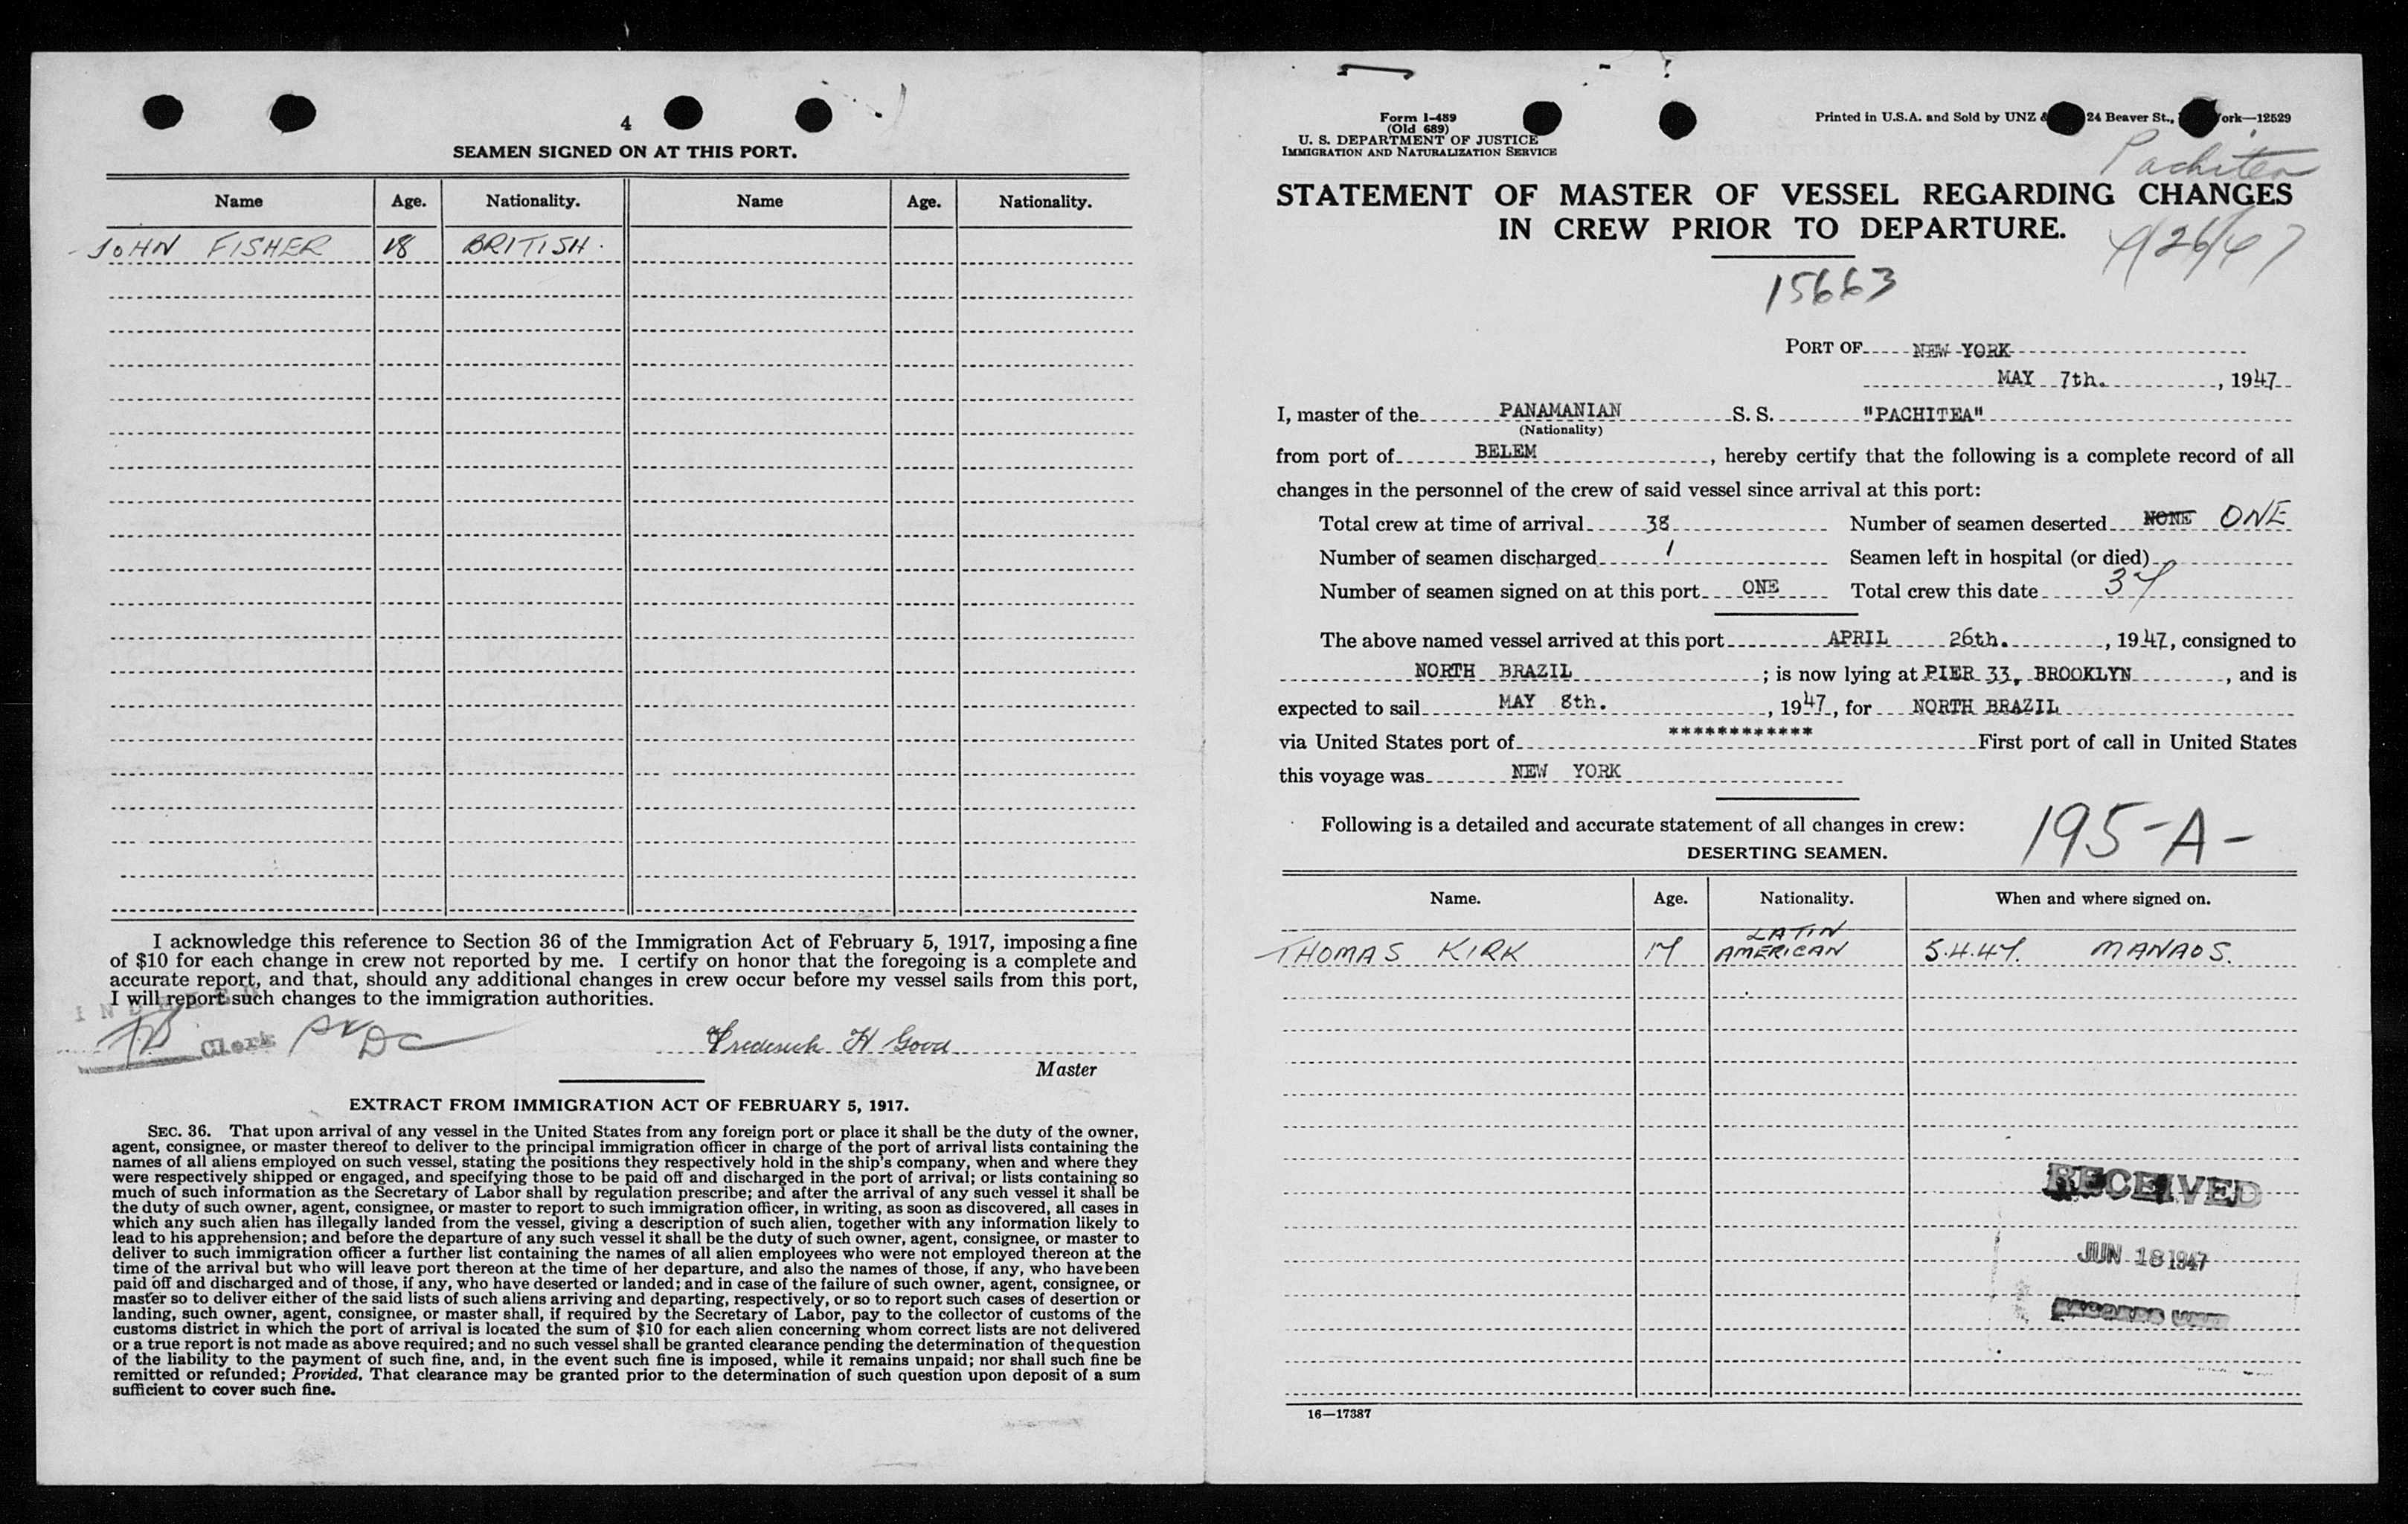 4
SEAMEN SIGNED ON AT THIS PORT.
Name Age. Nationality. Name Age. Nationality.
JOHN FISHER 18 BRITISH.
I acknowledge this reference to Section 36 of the Immigration Act of February 5, 1917, imposing a fine
of $10 for each change in crew not reported by me. I certify on honor that the foregoing is a complete and
accurate report, and that, should any additional changes in crew occur before my vessel sails from this port,
I will report such changes to the immigration authorities.
INDEXED
Clerk
Frederick H Good
Master
EXTRACT FROM IMMIGRATION ACT OF FEBRUARY 5, 1917.
SEC. 36. That upon arrival of any vessel in the United States from any foreign port or place it shall be the duty of the owner,
agent, consignee, or master thereof to deliver to the principal immigration officer in charge of the port of arrival lists containing the
names of all aliens employed on such vessel, stating the positions they respectively hold in the ship's company, when and where they
were respectively shipped or engaged, and specifying those to be paid off and discharged in the port of arrival; or lists containing so
much of such information as the Secretary of Labor shall by regulation prescribe; and after the arrival of any such vessel it shall be
the duty of such owner, agent, consignee, or master to report to such immigration officer, in writing, as soon as discovered, all cases in
which any such alien has illegally landed from the vessel, giving a description of such alien, together with any information likely to
lead to his apprehension; and before the departure of any such vessel it shall be the duty of such owner, agent, consignee, or master to
deliver to such immigration officer a further list containing the names of all alien employees who were not employed thereon at the
time of the arrival but who will leave port thereon at the time of her departure, and also the names of those, if any, who have been
paid off and discharged and of those, if any, who have deserted or landed; and in case of the failure of such owner, agent, consignee, or
master so to deliver either of the said lists of such aliens arriving and departing, respectively, or so to report such cases of desertion or
landing, such owner, agent, consignee, or master shall, if required by the Secretary of Labor, pay to the collector of customs of the
customs district in which the port of arrival is located the sum of $10 for each alien concerning whom correct lists are not delivered
or a true report is not made as above required; and no such vessel shall be granted clearance pending the determination of the question
of the liability to the payment of such fine, and, in the event such fine is imposed, while it remains unpaid; nor shall such fine be
remitted or refunded; Provided, That clearance may be granted prior to the determination of such question upon deposit of a sum
sufficient to cover such fine.
Form I-489
(Old 689)
U. S. DEPARTMENT OF JUSTICE
IMMIGRATION AND NATURALIZATION SERVICE
Printed in U.S.A. and Sold by UNZ & 24 Beaver St., ork—12529
Pachitea
STATEMENT OF MASTER OF VESSEL REGARDING CHANGES
IN CREW PRIOR TO DEPARTURE.
4/26/47
15663
PORT OF NEW YORK
MAY 7th., 1947
I, master of the PANAMANIAN S. S. "PACHITEA"
(Nationality)
from port of BELEM, hereby certify that the following is a complete record of all
changes in the personnel of the crew of said vessel since arrival at this port:
Total crew at time of arrival 38 Number of seamen deserted NONE ONE
Number of seamen discharged 1 Seamen left in hospital (or died)
Number of seamen signed on at this port ONE Total crew this date 37
The above named vessel arrived at this port APRIL 26th., 1947, consigned to
NORTH BRAZIL; is now lying at PIER 33, BROOKLYN, and is
expected to sail MAY 8th., 1947, for NORTH BRAZIL
via United States port of ************ First port of call in United States
this voyage was NEW YORK
Following is a detailed and accurate statement of all changes in crew:
195-A-
DESERTING SEAMEN.
Name. Age. Nationality. When and where signed on.
THOMAS KIRK 17 LATIN AMERICAN 5.4.47. MANAOS.
RECEIVED
JUN 18 1947
RECORDS UNIT
16—17387